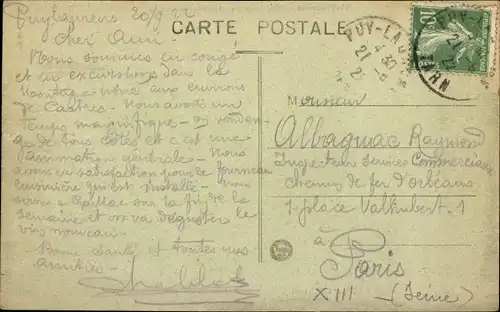 Puylaurens 20/9 22
CARTE POSTALE
Cher Ami -
Nous sommes en congé
et en excursions dans la
Montagne Noire aux environs
de Castres - Nous avons un
temps magnifique - on vendan-
ge de tous côtés et c'est une
animation générale - Nous
avons eu satisfaction pour le fourneau
cuisinière qui est installé - Nous
serons à Gaillac sur la fin de la
semaine et on va déguster le
vin nouveau -
Bonne Santé et toutes nos
amitiés -
PUY-LAURENS
TARN
10
Monsieur
Albagnac Raymond
Inspecteur Services Commerciaux
Chemin de fer d'Orléans
1 - place Valhubert - 1
à
Paris
XIII
(Seine)